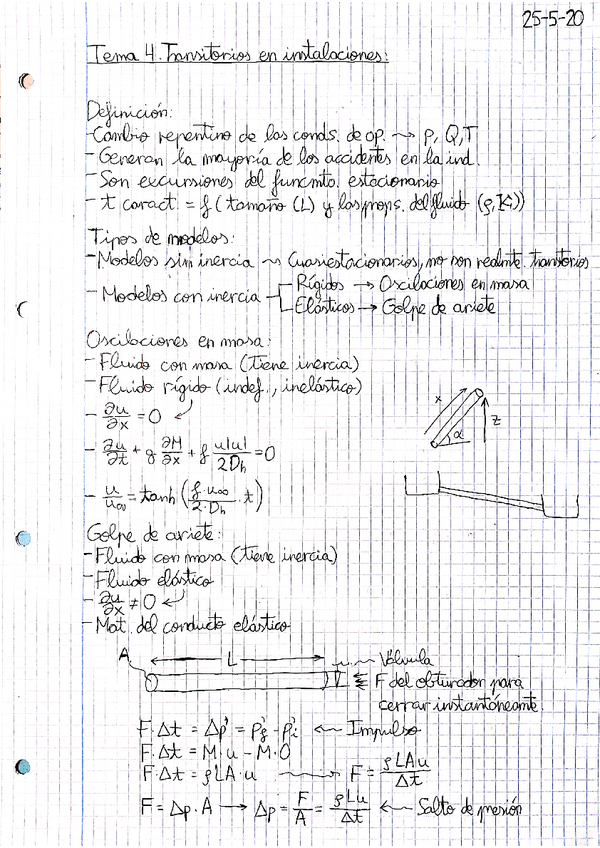 25-5-20
Tema 4. Transitorios en instalaciones:
Definición:
- Cambio repentino de las conds. de op. ⇝ p, Q, T
- Generan la mayoría de los accidentes en la ind.
- Son excursiones del funcmto. estacionario
- t caract. = f (tamaño (L) y las props. del fluido (ρ, K))
Tipos de modelos:
- Modelos sin inercia ⇝ Cuasiestacionarios, no son realmte. transitorios
- Modelos con inercia
Rígidos → Oscilaciones en masa
Elásticos → Golpe de ariete
Oscilaciones en masa:
- Fluido con masa (tiene inercia)
- Fluido rígido (indef., inelástico)
- ∂u/∂x = 0
- ∂u/∂t + g ∂H/∂x + f u|u|/2Dh = 0
- u/u∞ = tanh (f·u∞/2·Dh · t)
x
α
z
Golpe de ariete:
- Fluido con masa (tiene inercia)
- Fluido elástico
- ∂u/∂x ≠ 0
- Mat. del conducto elástico
A
L
Válvula
F del obturador para
cerrar instantáneamte
F·Δt = Δp' = p'f - p'i ← Impulso
F·Δt = M·u - M·0
F·Δt = ρLA·u → F = ρLAu/Δt
F = Δp·A → Δp = F/A = ρLu/Δt ← Salto de presión